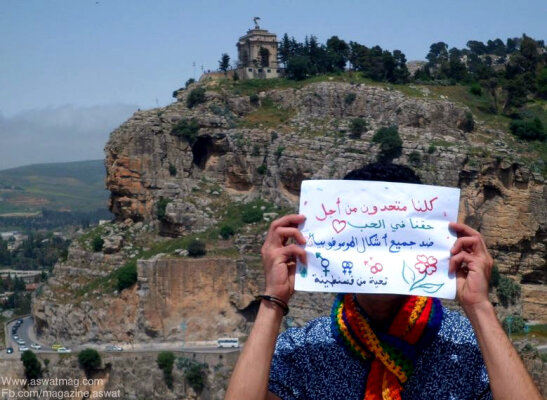 كلنا متحدون من أجل
حقنا في الحب
ضد جميع أشكال الهوموفوبيا
تحية من قسنطينة
www.aswatmag.com
Fb.com/magazine.aswat